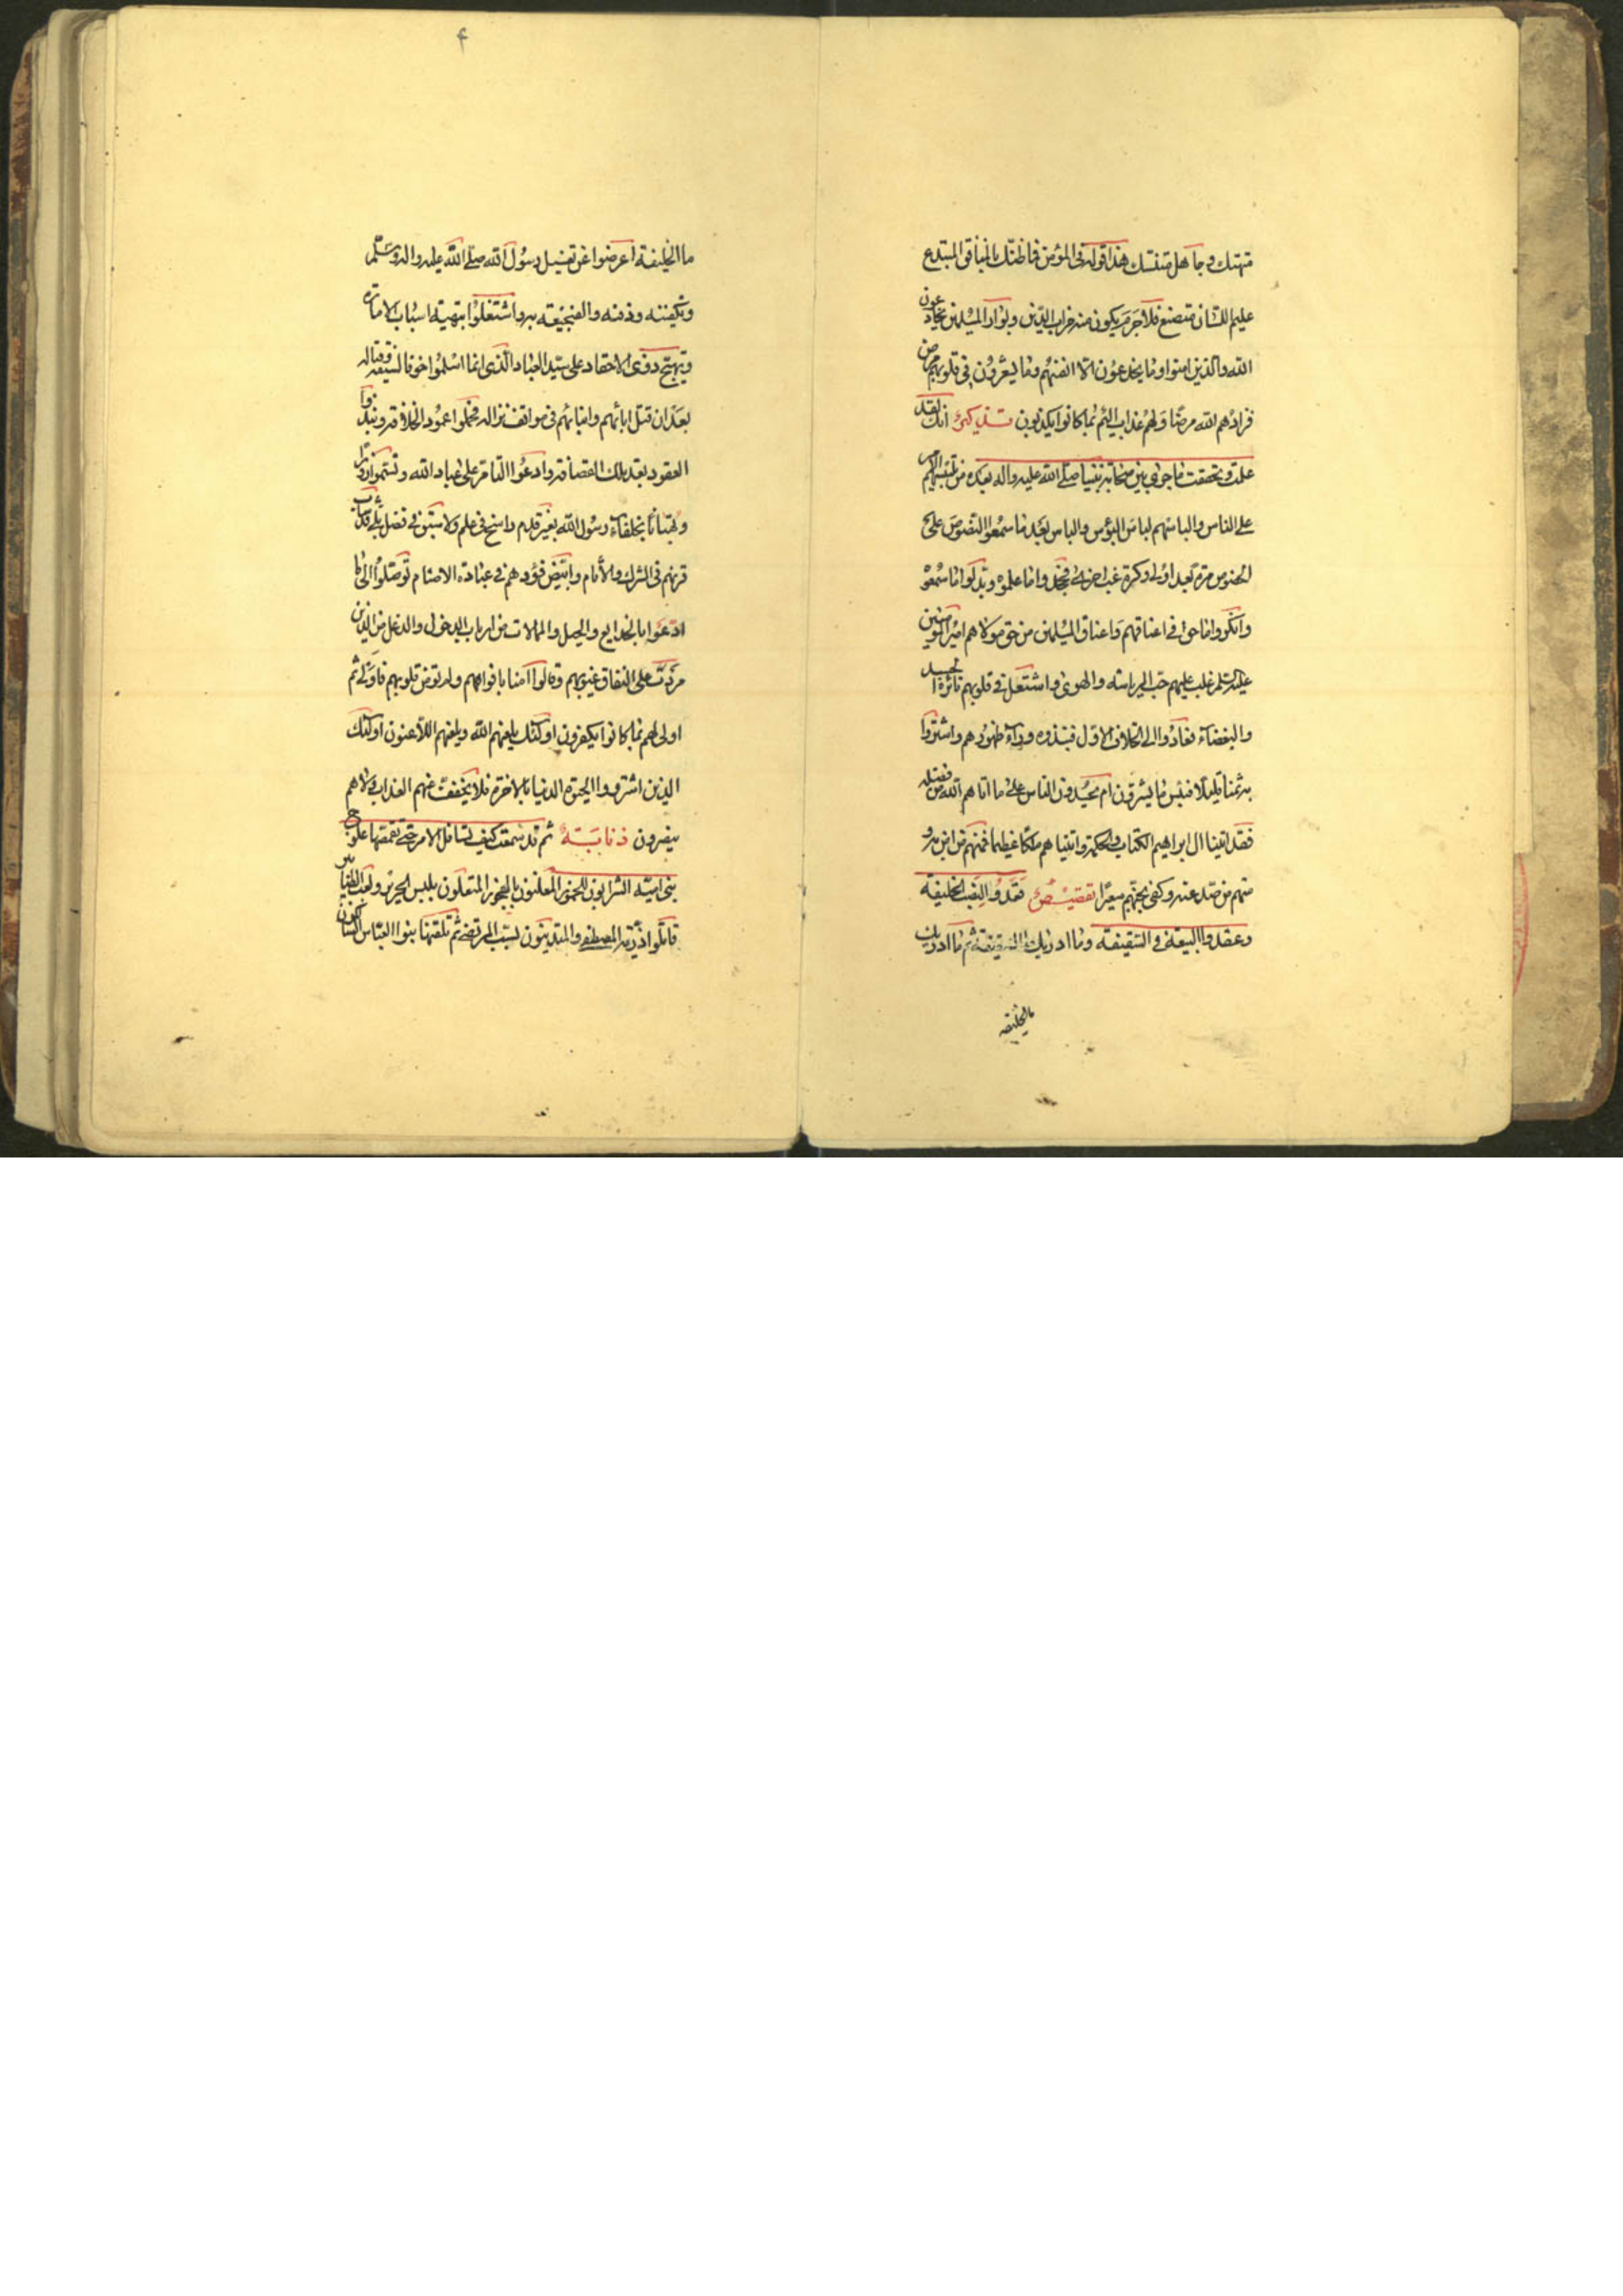 متهتك وجاهل متنسك هذا قوله في المؤمن فما ظنك بالمنافق المبتدع
عليم اللسان متصنع فلا جرم يكون منه خراب الدين وبوار المسلمين يخادعون
الله والذين امنوا وما يخدعون الا انفسهم وما يشعرون في قلوبهم مرض
فزادهم الله مرضا ولهم عذاب اليم بما كانوا يكذبون تذكير انك لقد
علمت وتحققت ما جرى بين صحابة نبينا صلى الله عليه واله بعده من تلبيسهم
على الناس والباسهم لباس البؤس والباس بعد ما سمعوا النصوص على
الخصوص مرة بعد اولى وكرة غب اخرى فجحدوا ما علموه وبدلوا ما سمعوه
وانكروا ما حق في اعناقهم واعناق المسلمين من حق مولاهم امير المؤمنين
عليه السلم غلب عليهم حب الرياسة والهوى واشتعل في قلوبهم نائرة الحسد
والبغضاء فعادوا الى الخلاف الاول فنبذوه وراء ظهورهم واشتروا
به ثمنا قليلا فبئس ما يشترون ام يحسدون الناس على ما اتاهم الله من فضله
فقد اتينا ال ابراهيم الكتاب والحكمة واتيناهم ملكا عظيما فمنهم من امن به و
منهم من صد عنه وكفى بجهنم سعيرا تقصيص فقدوا لنصب الخليفة
وعقدوا البيعة في السقيفة وما ادريك ما السقيفة ثم ما ادريك
ما الخليفة
۴
ما الخليفة اعرضوا عن تغسيل رسول الله صلى الله عليه واله وسلم
وتكفينه ودفنه والفجيعة به واشتغلوا بتهيئة اسباب الامارة
وتهييج ذوي الاحقاد على سيد العباد الذي انما اسلموا خوفا لسيفه وقتاله
بعد ان قتل ابائهم وابنائهم في مواقف نزاله فحملوا عمود الخلافة ونبذوا
العقود بعد تلك القصافة وادعوا التامر على عباد الله وتسموا زورا
وبهتانا بخلفاء رسول الله بغير قدم راسخ في علم ولا سبق في فضل بلى قد شاب
قرنهم في الشرك والأثام وابيض فودهم في عبادة الاصنام توصلوا الى ما
ادعوا بالخدايع والحيل والممالات من ارباب الدخول والدغل من الذين
مردت على النفاق غيوبهم وقالوا امنا بافواههم ولم تؤمن قلوبهم فاولى ثم
اولى لهم بما كانوا يكفرون اولئك يلعنهم الله ويلعنهم اللاعنون اولئك
الذين اشتروا الحيوة الدنيا بالاخرة فلا يخفف عنهم العذاب ولا هم
ينصرون ذنابة ثم قد سمعت كيف تسافل الامر حتى تقمصها علوج
بني امية الشرابون للخمور المعلنون بالفجور المتعلون بلبس الحرير ولعب الطنابير
قاتلوا ذرية المصطفى والمتدينون بسب المرتضى ثم تلقتها بنوا العباس الساكنون